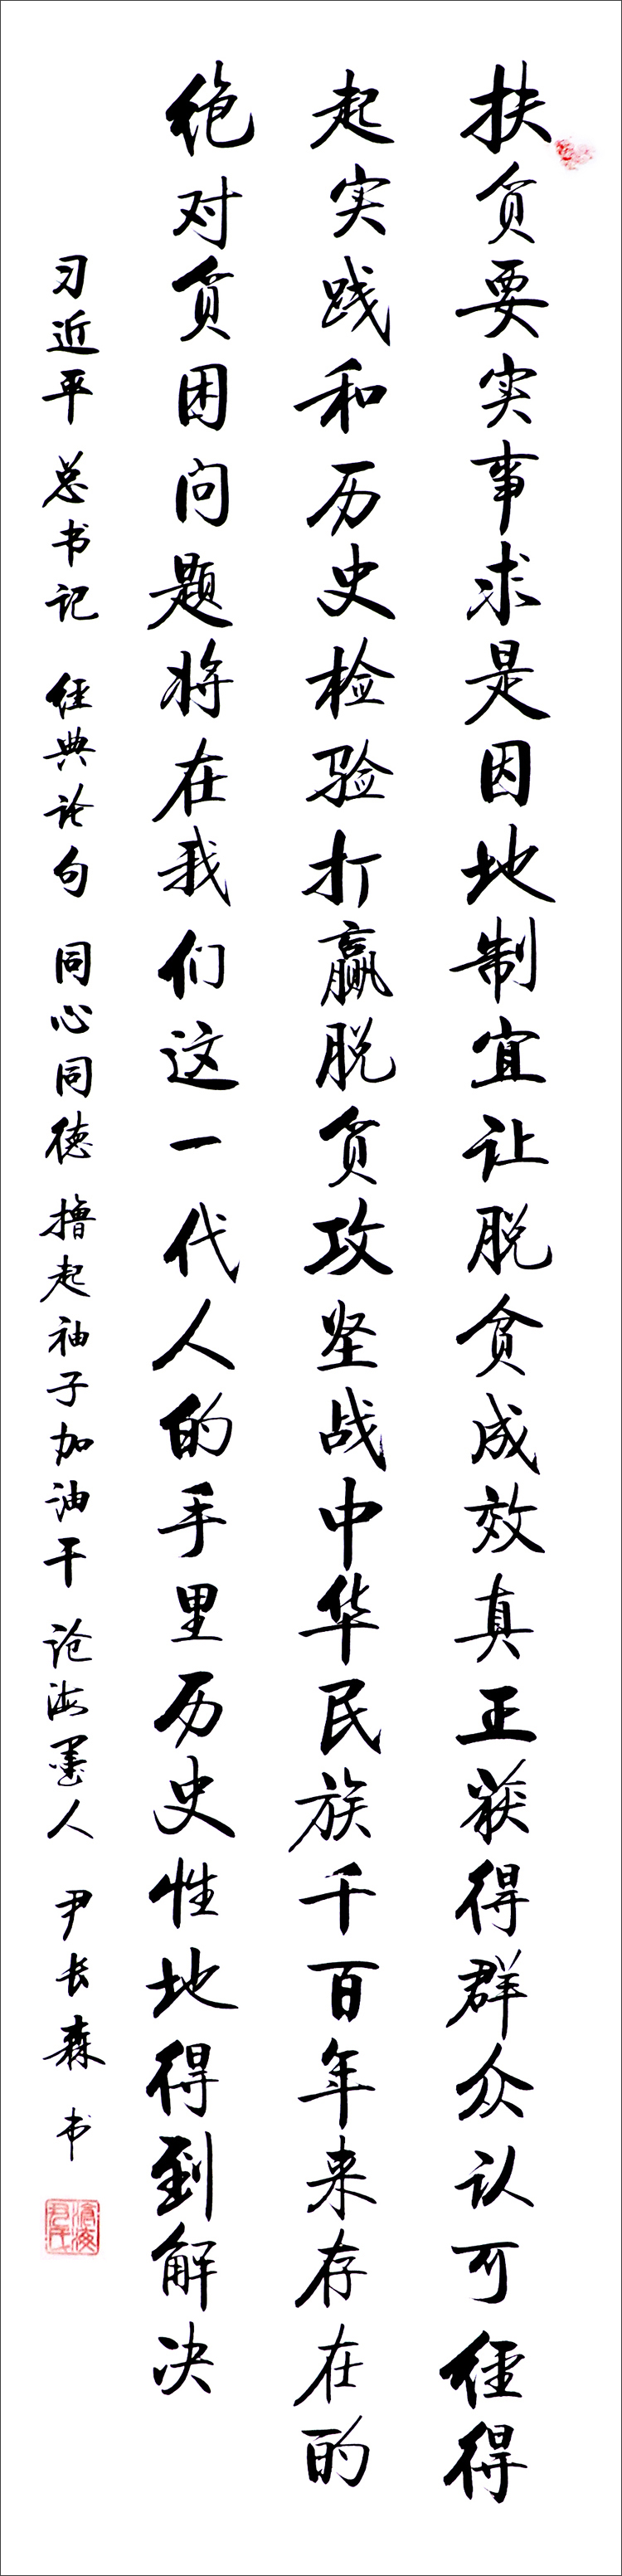 扶贫要实事求是因地制宜让脱贫成效真正获得群众认可经得
起实践和历史检验打赢脱贫攻坚战中华民族千百年来存在的
绝对贫困问题将在我们这一代人的手里历史性地得到解决
习近平 总书记 经典论句 同心同德 撸起袖子加油干 沧海墨人 尹长森 书
沧海
尹氏